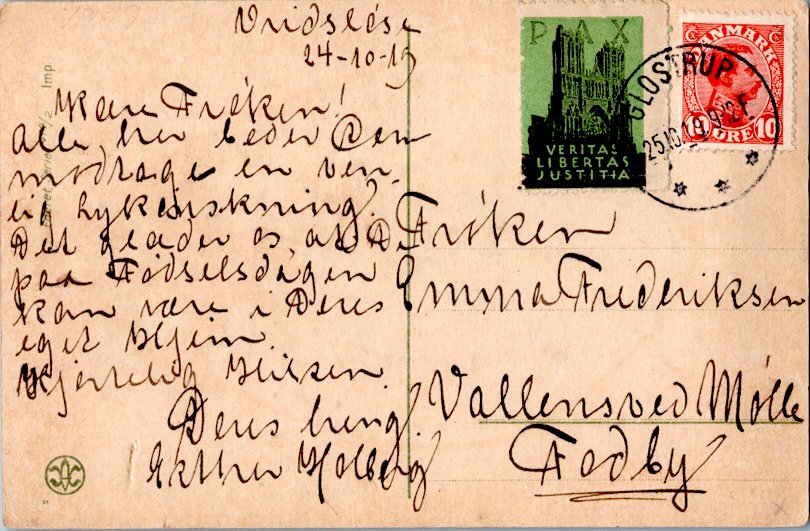 Vridsløse
24-10-19
Kære Frøken!
Alle her beder Dem
modtage en ven-
lig Lykønskning.
Det glæder os, at De
paa Fødselsdagen
kan være i Deres
eget Hjem.
Hjertelig Hilsen.
Deres heng.
Esther Holberg
PAX
VERITAS
LIBERTAS
JUSTITIA
DANMARK
10 ØRE 10
GLOSTRUP
25.10.19. 9-12 F.
Frøken
Emma Frederiksen
Vallensved Mølle
Fodby
Imp